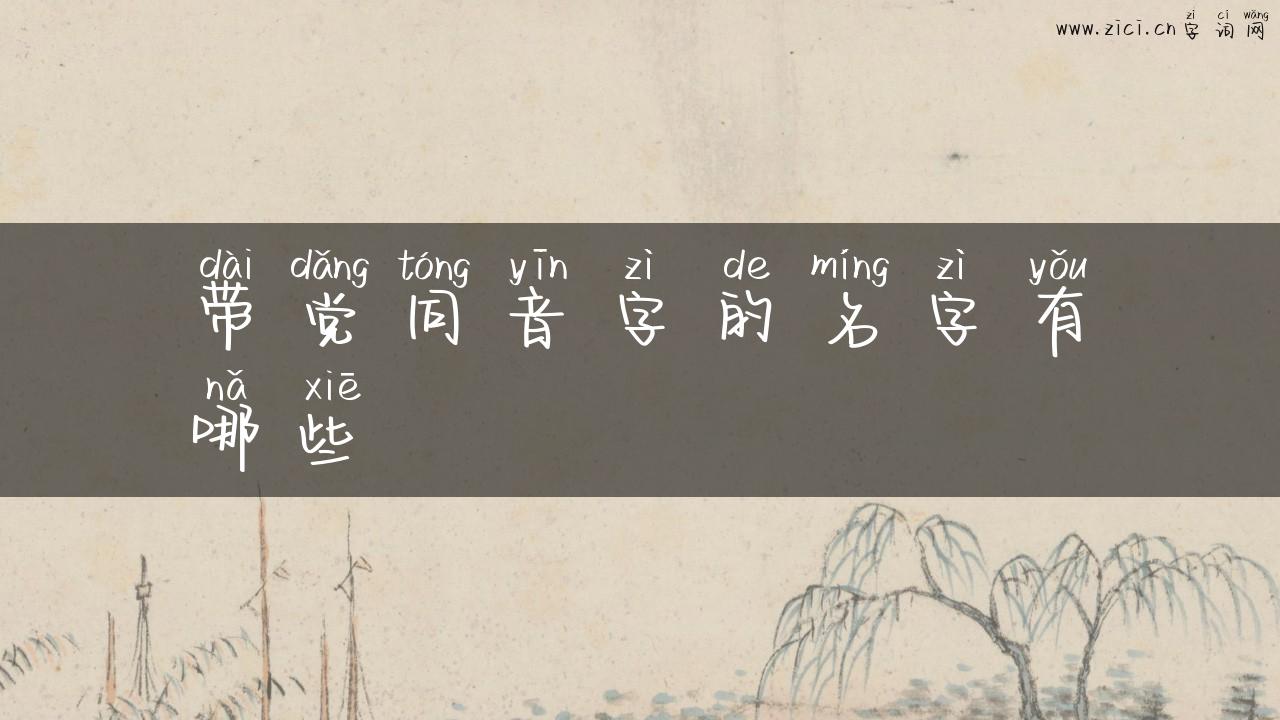 zì cí wǎng
www.zici.cn 字 词 网
dài dǎng tóng yīn zì de míng zì yǒu
带 党 同 音 字 的 名 字 有
nǎ xiē
哪 些